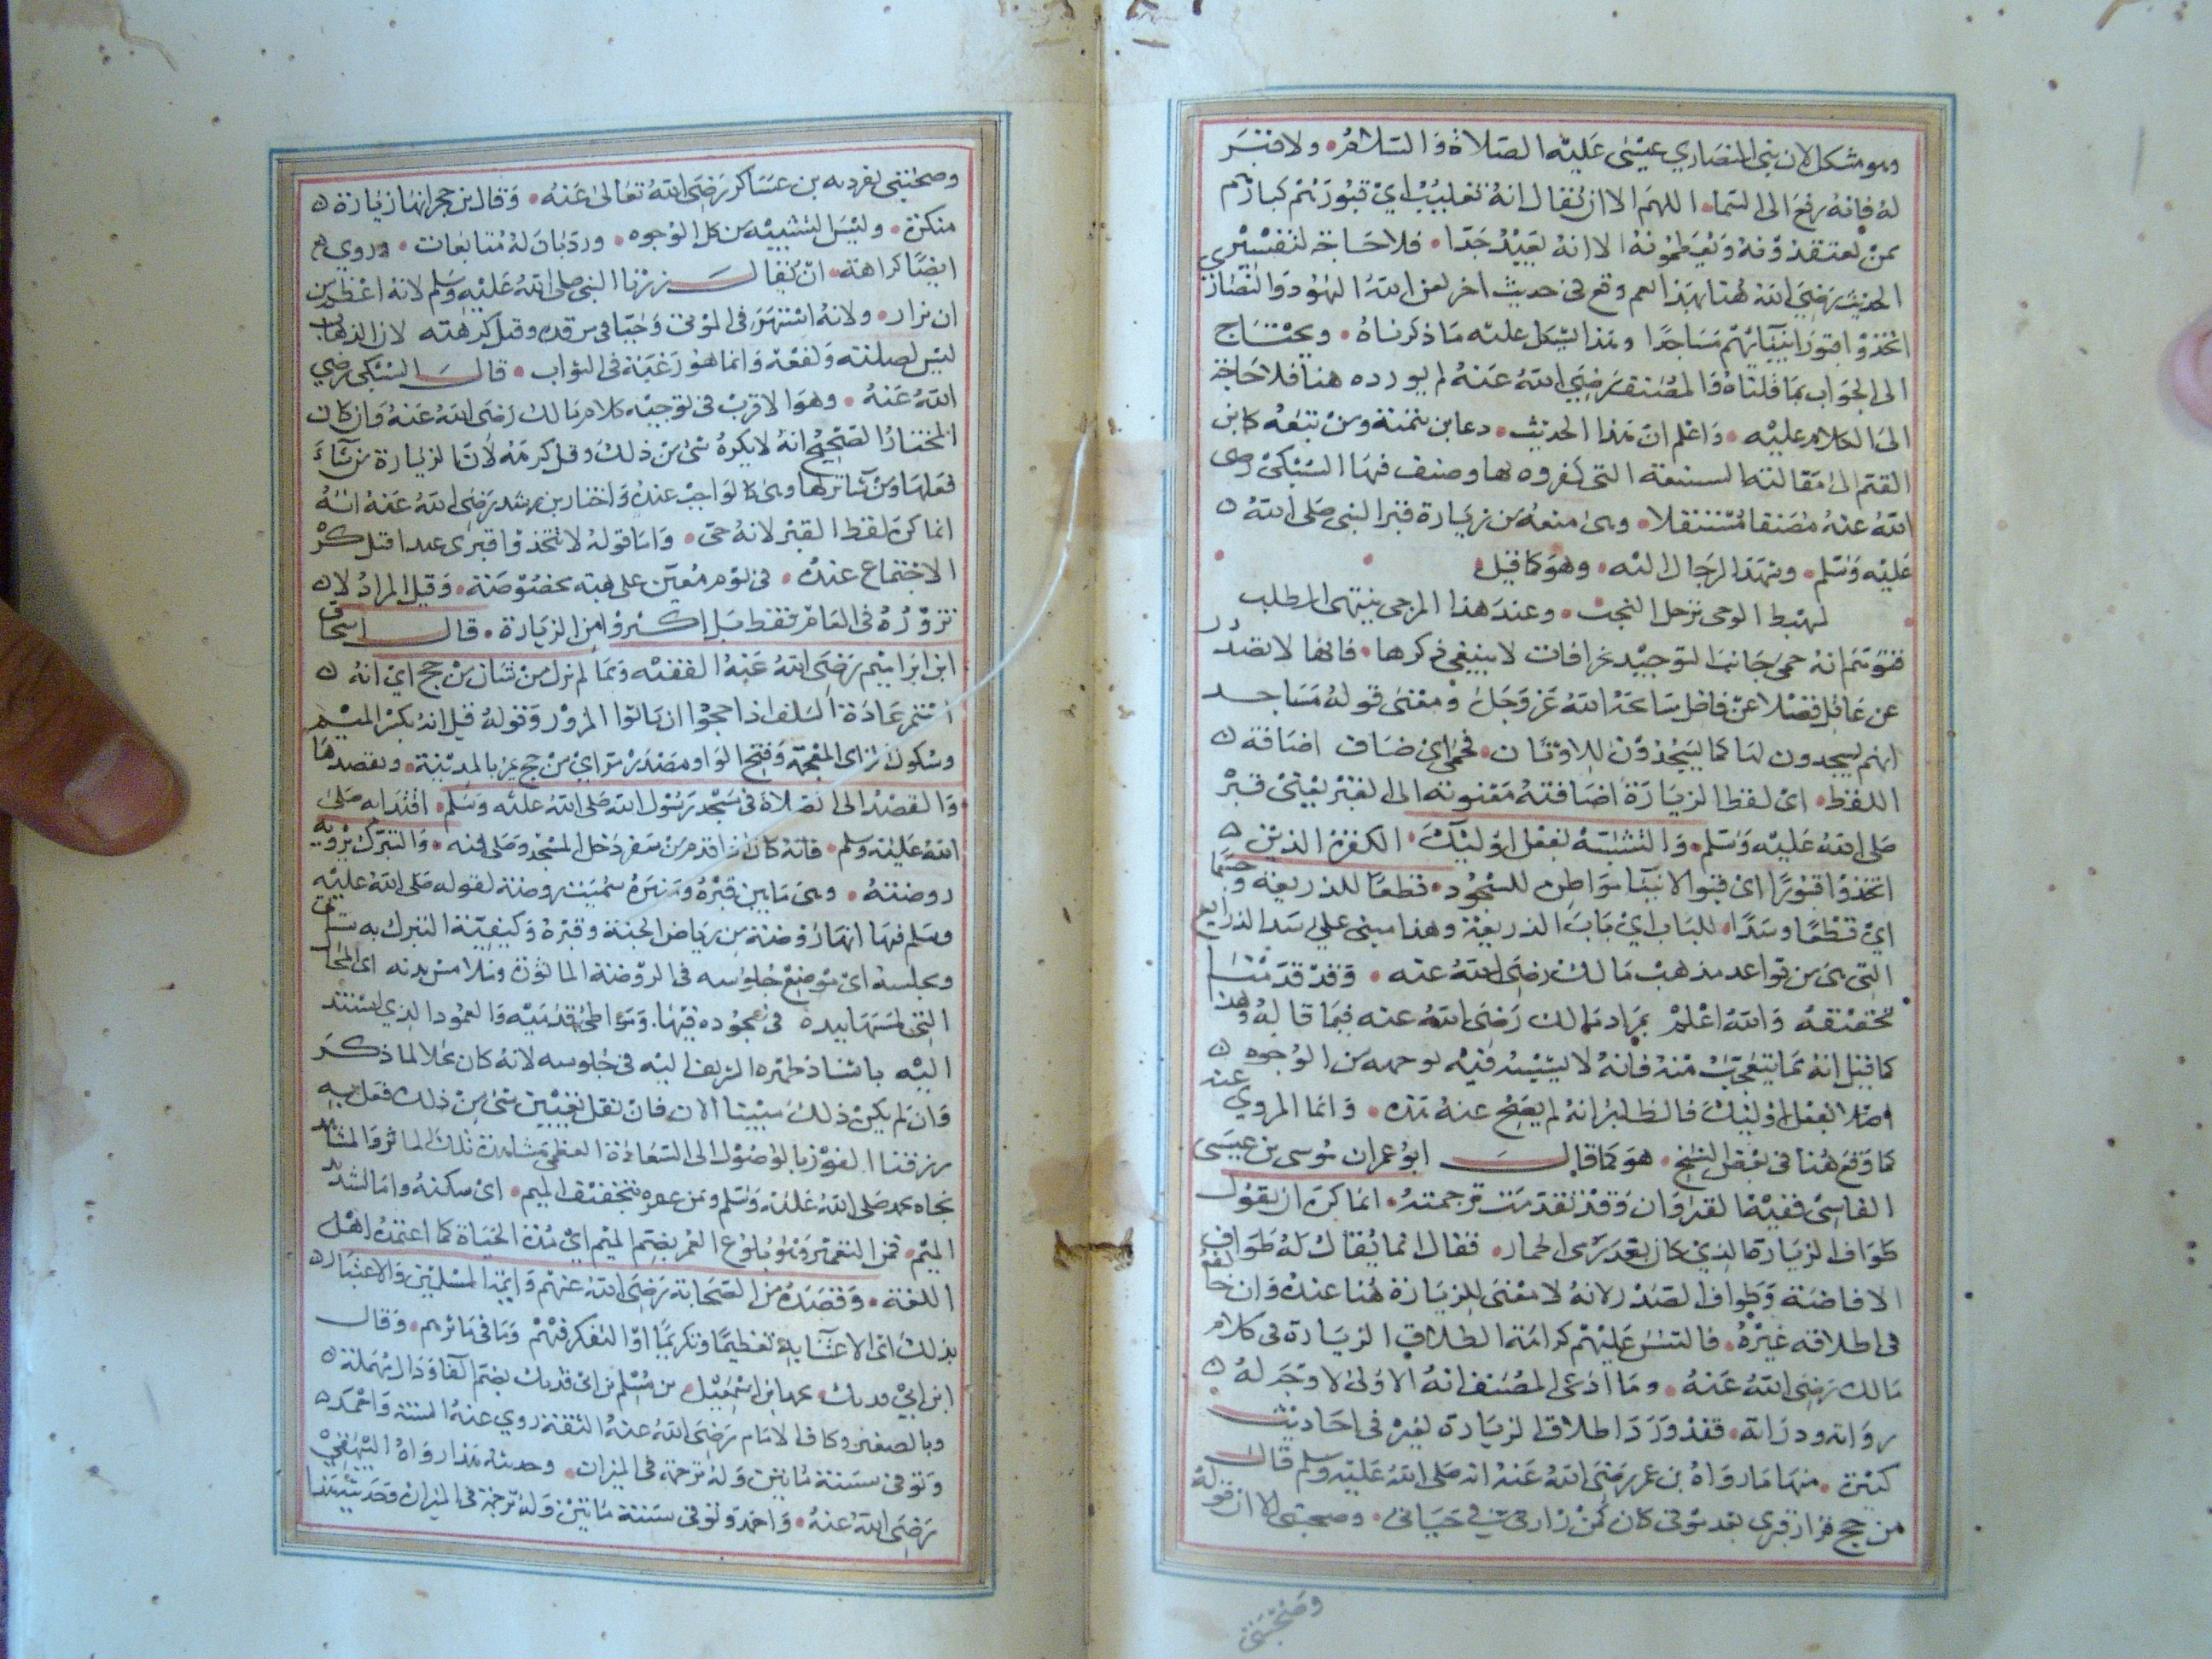 وهو مشكل لان نبي النصاري عيسى عليه الصلاة والسلام ولا قبر
له فانه رفع الى السما اللهم الا ان يقال انه تغليب اي قبور من كبارهم
ممن يعتقدونه ويعظمونه الا انه بعيد جدا فلا حاجة لتفسيري
الحديث رضي الله هنا بهذا نعم وقع في حديث اخر لعن الله اليهود والنصارى
اتخذوا قبور انبيائهم مساجدا وهذا يشكل عليه ما ذكرناه ويحتاج
الى الجواب بما قلناه والمصنف رضي الله عنه لم يورده هنا فلا حاجة
الى الكلام عليه واعلم ان هذا الحديث دعا ابن تيمية ومن تبعه كابن
القيم الى مقالته الشنيعة التي كفروه بها وصنف فيها السبكي رضى
الله عنه مصنفا مستقلا وهى منعه من زيارة قبر النبي صلى الله
عليه وسلم وشد الرحال اليه وهو كما قيل
لمهبط الوحى ترحل النجب وعند هذا المرجى ينتهى الطلب
فتوهم انه حمى جانب التوحيد بخرافات لا ينبغي ذكرها فانها لا تصدر
عن عاقل فضلا عن فاضل سامحه الله عز وجل ومعنى قوله مساجد
انهم يسجدون لها كما يسجدون للاوثان فحمى اي ضاف اضافة
اللفظ اى لفظ الزيارة اضافته مقرونة الى القبر يعني قبر
صلى الله عليه وسلم والتشبه بفعل اوليك الكفرة الذين
اتخذوا قبورا اى قبور الانبيا مواطن للسجود قطعا للذريعة وحسما
اي قطعا وسدا للباب اي باب الذريعة وهذا مبنى على سد الذرايع
التي هى من قواعد مذهب مالك رضى الله عنه وقد قدمنا
تحقيقه والله اعلم بمراد مالك رضى الله عنه فيما قاله وهذا
كما قيل انه مما يتعجب منه فانه لا يتشبه فيه بوجه من الوجوه
اصلا بفعل اوليك فالظاهر انه لم يصح عنه هذه وانما المروي عنه
كما وقع هنا في بعض النسخ هو كما قال ابو عمران موسى بن عيسى
الفاسي فقيه القيروان وقد تقدمت ترجمته انما كره ان يقول
طواف الزيارة الذي كان بعد رمى الجمار فقال انما يقال له طواف
الافاضة وطواف الصدر لانه لا معنى للزيارة هنا عنده وان خالفه
في اطلاقه غيره فالتبس عليهم كراهة اطلاق الزيارة في كلام
مالك رضى الله عنه وما ادعى المصنف انه الاولى لا وجه له
رواية ودراية فقد ورد اطلاق الزيارة لغير في احاديث
كثيرة منها ما رواه بن عمر رضى الله عنه انه صلى الله عليه وسلم قال
من حج فزار قبرى بعد موتى كان كمن زارنى في حياتى وصحبنى الا ان قوله
وصحبنى
وصحبنى تفرد به بن عساكر رضى الله تعالى عنه وقال ابن حجر انها زيادة
منكرة وليس التشبيه من كل الوجوه ورد بان له متابعات وروي
ايضا كراهة ان يقال زرنا النبي صلى الله عليه وسلم لانه اعظم من
ان يزار ولانه اشتهر في الموتى وحيا في مرقده وقيل كرهته لان الذهاب
ليس لصلته ونفعه وانما هو رغبة في الثواب قال السبكى رضي
الله عنه وهو الاقرب في توجيه كلام مالك رضى الله عنه وان كان
المختار الصحيح انه لا يكره شى من ذلك وقيل كرهه لان الزيارة من شاء
فعلها ومن شا تركها وهى كالواجب عنده واختار بن رشد رضى الله عنه انه
انما كره لفظ القبر لانه حى واما قوله لا تتخذوا قبرى عيدا قيل كره
الاجتماع عنده في يوم معين على هية مخصوصة وقيل المراد لا
تزوروه في العام فقط بل اكثروا من الزيارة قال اسحاق
ابن ابراهيم رضى الله عنه الفقيه ومما لم يزل من شان من حج اي انه
استمر عادة السلف اذا حجوا ان ياتوا المزور وقوله قيل انه بكسر الميم
وسكون الزاى المعجمة وفتح الواو مصدر اي من حج يمر بالمدينة ويقصدها
والقصد الى الصلاة في مسجد رسول الله صلى الله عليه وسلم اقتدا به صلى
الله عليه وسلم فانه كان اذا قدم من سفر دخل المسجد وصلى فيه والتبرك برؤية
روضته وهى ما بين قبره ومنبره سميت روضة لقوله صلى الله عليه
وسلم فيها انها روضة من رياض الجنة وقبره وكيفية التبرك به
ومجلسه اى موضع جلوسه في الروضة المالوف وملامس يديه اى المحال
التي لمستها يده في سجوده فيها ومواطى قدميه والعمود الذي استند
اليه باسناد ظهره الشريف اليه في جلوسه لانه كان محلا لما ذكر
وان لم يكن ذلك مبينا الان فان نقل تعيين شى من ذلك فعل به
رزقنا الفوز بالوصول الى السعادة العظمى مشاهدة تلك الماثر والمشاهد
بجاه محمد صلى الله عليه وسلم ومن عمره بتخفيف الميم اى سكنه واما بتشديد
الميم فمن التعمير وهو بلوغ العمر بضم الميم اي مدة الحياة كما اعتمده اهل
اللغة وقصده من الصحابة رضى الله عنهم وايمة المسلمين والاعتبار
بذلك اى الاعتنا به تعظيما وتكريما او التفكر فيهم وما في ماثرهم وقال
ابن ابي فديك محمد بن اسمعيل بن مسلم بن ابى فديك بضم الفا ودال مهملة
وبالصغير وكاف الامام رضى الله عنه الثقة روي عنه الستة واحمد
وتوفى سنة مايتين وله ترجمة في الميزان وحديثه هذا رواه البيهقي
رضى الله عنه واحمد وتوفى سنة مايتين وله ترجمة في الميزان وحديثه هذا